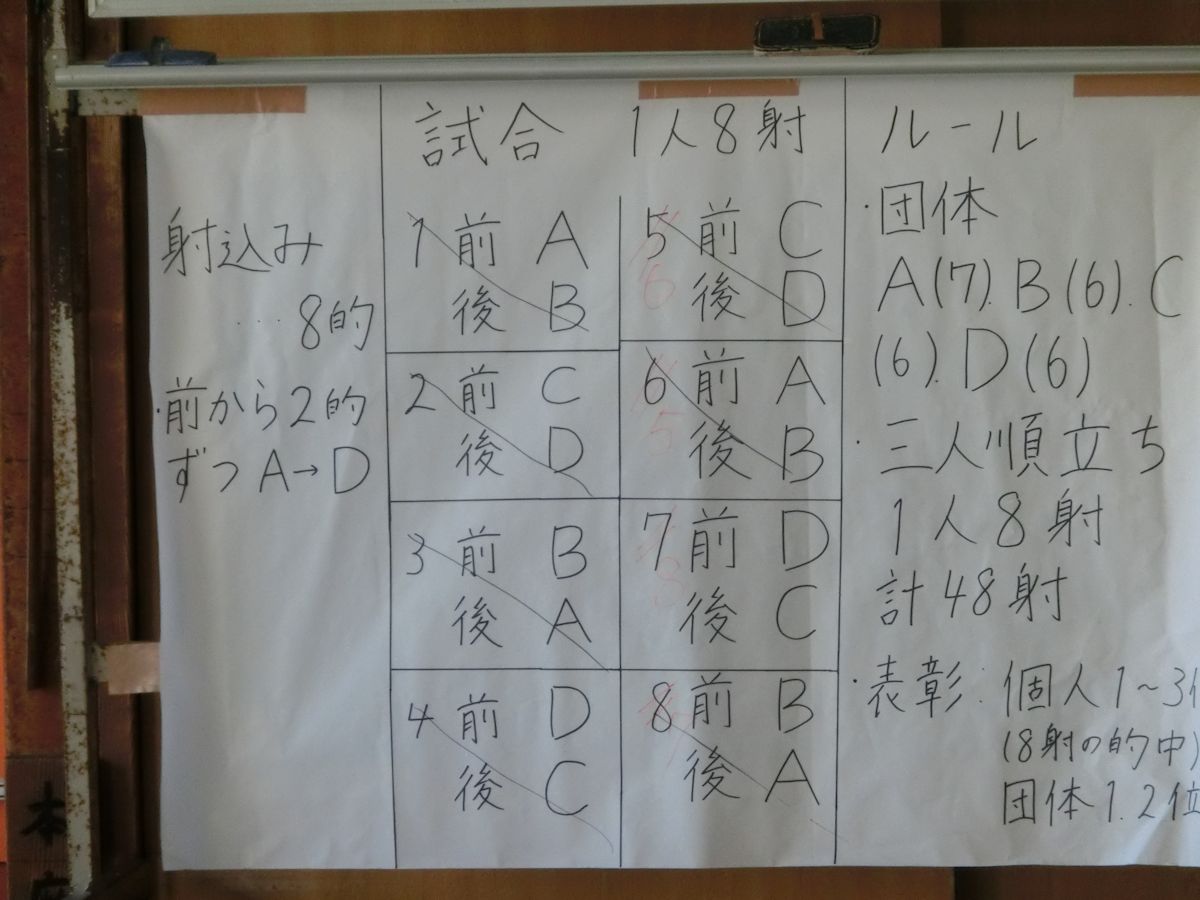 射込み
…8的
・前から2的
ずつA→D
試合 1人8射
1 前 A
後 B
2 前 C
後 D
3 前 B
後 A
4 前 D
後 C
5 前 C
6 後 D
6 前 A
5 後 B
7 前 D
8 後 C
8 前 B
7 後 A
ルール
・団体
A(7). B(6). C
(6). D(6)
・三人順立ち
1人8射
計48射
・表彰: 個人1~3位
(8射の的中)
団体1.2位
本